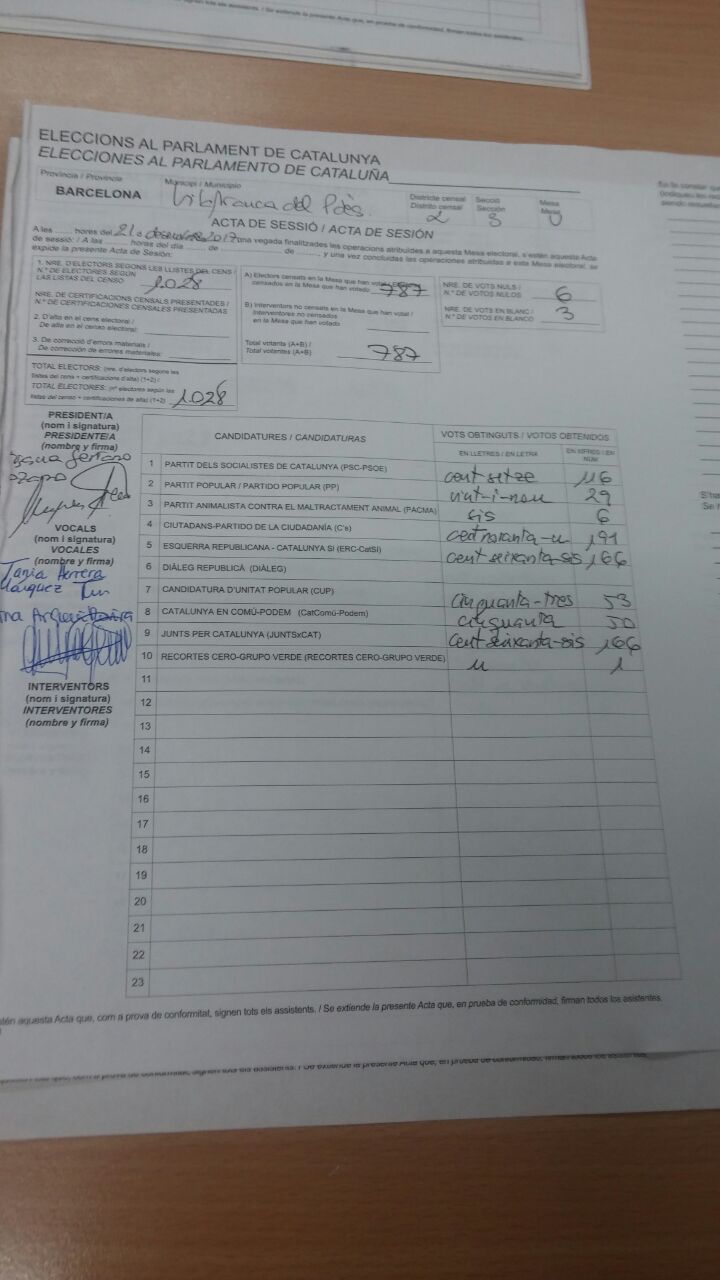 ELECCIONS AL PARLAMENT DE CATALUNYA
ELECCIONES AL PARLAMENTO DE CATALUÑA
Província / Provincia
BARCELONA
Municipi / Municipio
Vilafranca del Pdès.
Districte censal
Distrito censal 2
Secció
Sección 3
Mesa
Mesa U
ACTA DE SESSIÓ / ACTA DE SESIÓN
A les ...... hores del 21 de desembre 2017 una vegada finalitzades les operacions atribuïdes a aquesta Mesa electoral, s'estén aquesta Acta
de sessió: / A las ...... horas del día ...... de ...... de ......, y una vez concluidas las operaciones atribuidas a esta Mesa electoral, se
expide la presente Acta de Sesión:
1. NRE. D'ELECTORS SEGONS LES LLISTES DEL CENS /
N.º DE ELECTORES SEGÚN
LAS LISTAS DEL CENSO 1.028
NRE. DE CERTIFICACIONS CENSALS PRESENTADES /
N.º DE CERTIFICACIONES CENSALES PRESENTADAS
2. D'alta en el cens electoral /
De alta en el censo electoral:
3. De correcció d'errors materials /
De corrección de errores materiales:
TOTAL ELECTORS: (nre. d'electors segons les
llistes del cens + certificacions d'alta) (1+2) /
TOTAL ELECTORES: (nº electores según las
listas del censo + certificaciones de alta) (1+2): 1.028
A) Electors censats en la Mesa que han votat /
censados en la Mesa que han votado 787
B) Interventors no censats en la Mesa que han votat /
Interventores no censados
en la Mesa que han votado
Total votants (A+B) /
Total votantes (A+B) 787
NRE. DE VOTS NULS /
N.º DE VOTOS NULOS 6
NRE. DE VOTS EN BLANC /
N.º DE VOTOS EN BLANCO 3
PRESIDENT/A
(nom i signatura)
PRESIDENTE/A
(nombre y firma)
VOCALS
(nom i signatura)
VOCALES
(nombre y firma)
Tania Herrera
Márquez
INTERVENTORS
(nom i signatura)
INTERVENTORES
(nombre y firma)
CANDIDATURES / CANDIDATURAS
VOTS OBTINGUTS / VOTOS OBTENIDOS
EN LLETRES / EN LETRA
EN XIFRES / EN NÚM.
1 PARTIT DELS SOCIALISTES DE CATALUNYA (PSC-PSOE) cent setze 116
2 PARTIT POPULAR / PARTIDO POPULAR (PP) vint-i-nou 29
3 PARTIT ANIMALISTA CONTRA EL MALTRACTAMENT ANIMAL (PACMA) sis 6
4 CIUTADANS-PARTIDO DE LA CIUDADANÍA (C's) cent noranta-u 191
5 ESQUERRA REPUBLICANA - CATALUNYA SÍ (ERC-CatSí) cent seixanta-sis 166
6 DIÀLEG REPUBLICÀ (DIÀLEG)
7 CANDIDATURA D'UNITAT POPULAR (CUP) cinquanta-tres 53
8 CATALUNYA EN COMÚ-PODEM (CatComú-Podem) cinquanta 50
9 JUNTS PER CATALUNYA (JUNTSxCAT) cent seixanta-sis 166
10 RECORTES CERO-GRUPO VERDE (RECORTES CERO-GRUPO VERDE) u 1
11
12
13
14
15
16
17
18
19
20
21
22
23
stén aquesta Acta que, com a prova de conformitat, signen tots els assistents. / Se extiende la presente Acta que, en prueba de conformidad, firman todos los asistentes.